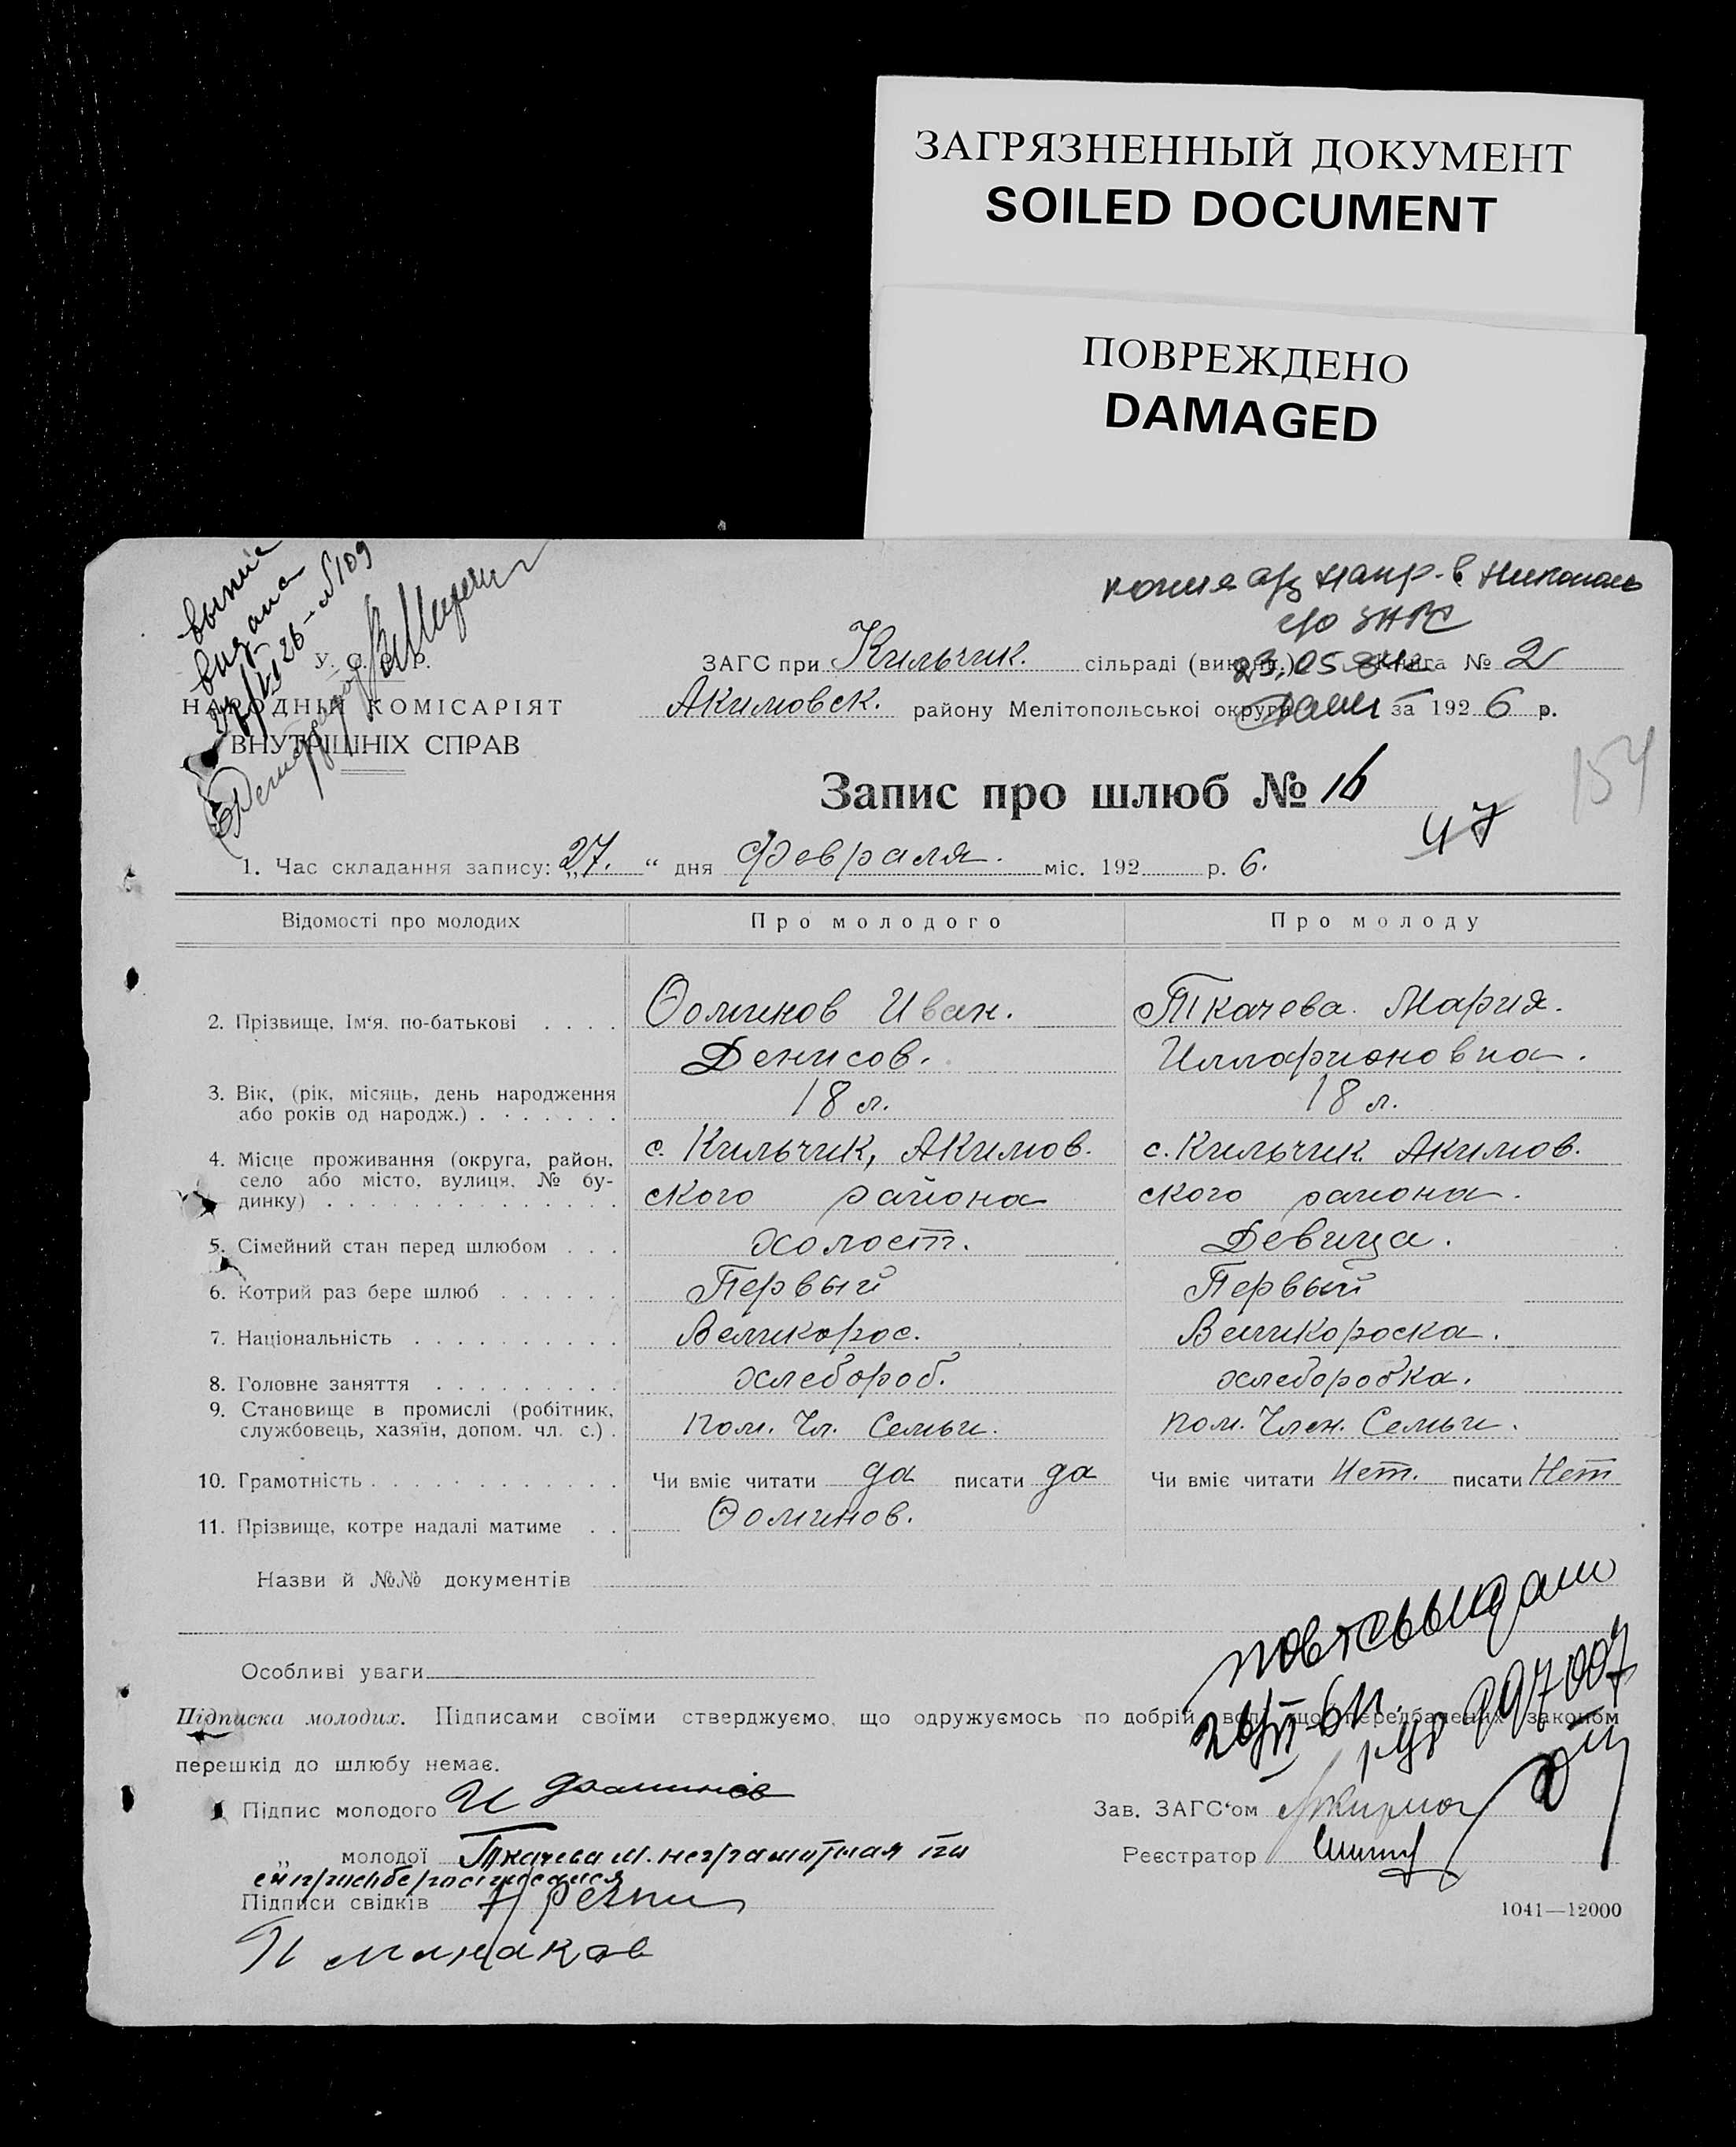 ЗАГРЯЗНЕННЫЙ ДОКУМЕНТ
SOILED DOCUMENT
ПОВРЕЖДЕНО
DAMAGED
У. С. Р. Р.
НАРОДНІЙ КОМІСАРІЯТ
ВНУТРІШНІХ СПРАВ
ЗАГС при Кильчик. сільраді (викон.) Книга № 2
Акимовск. району Мелітопольської округи за 1926 р.
Запис про шлюб № 16
47
154
1. Час складання запису: „27.“ дня Февраля. міс. 192 р. 6.
Відомості про молодих
Про молодого
Про молоду
2. Прізвище, Ім‘я, по-батькові
Фоминов Иван.
Денисов.
Ткачева Мария.
Илларионовна.
3. Вік, (рік, місяць, день народження
або років од народж.)
18 л.
18 л.
4. Місце проживання (округа, район,
село або місто, вулиця, № бу-
динку)
с. Кильчик, Акимов.
ского района
с. Кильчик Акимов.
ского района.
5. Сімейний стан перед шлюбом
холост.
Девица.
6. Котрий раз бере шлюб
Первый
Первый
7. Національність
Великорос.
Великороска.
8. Головне заняття
хлебороб.
хлеборобка.
9. Становище в промислі (робітник,
службовець, хазяїн, допом. чл. с.)
Пом. Чл. Семьи.
Пом. Член. Семьи.
10. Грамотність
Чи вміє читати да писати да
Чи вміє читати Нет. писати Нет
11. Прізвище, котре надалі матиме
Фоминов.
Назви й №№ документів
Особливі уваги
Підписка молодих. Підписами своїми стверджуємо, що одружуємось по добрій волі, що передбачених законом
перешкід до шлюбу немає.
Підпис молодого И Фоминов
Зав. ЗАГС‘ом
„ молодої Ткачева М. неграмотная по
Реєстратор
Підписи свідків
1041—12000
П Минаков